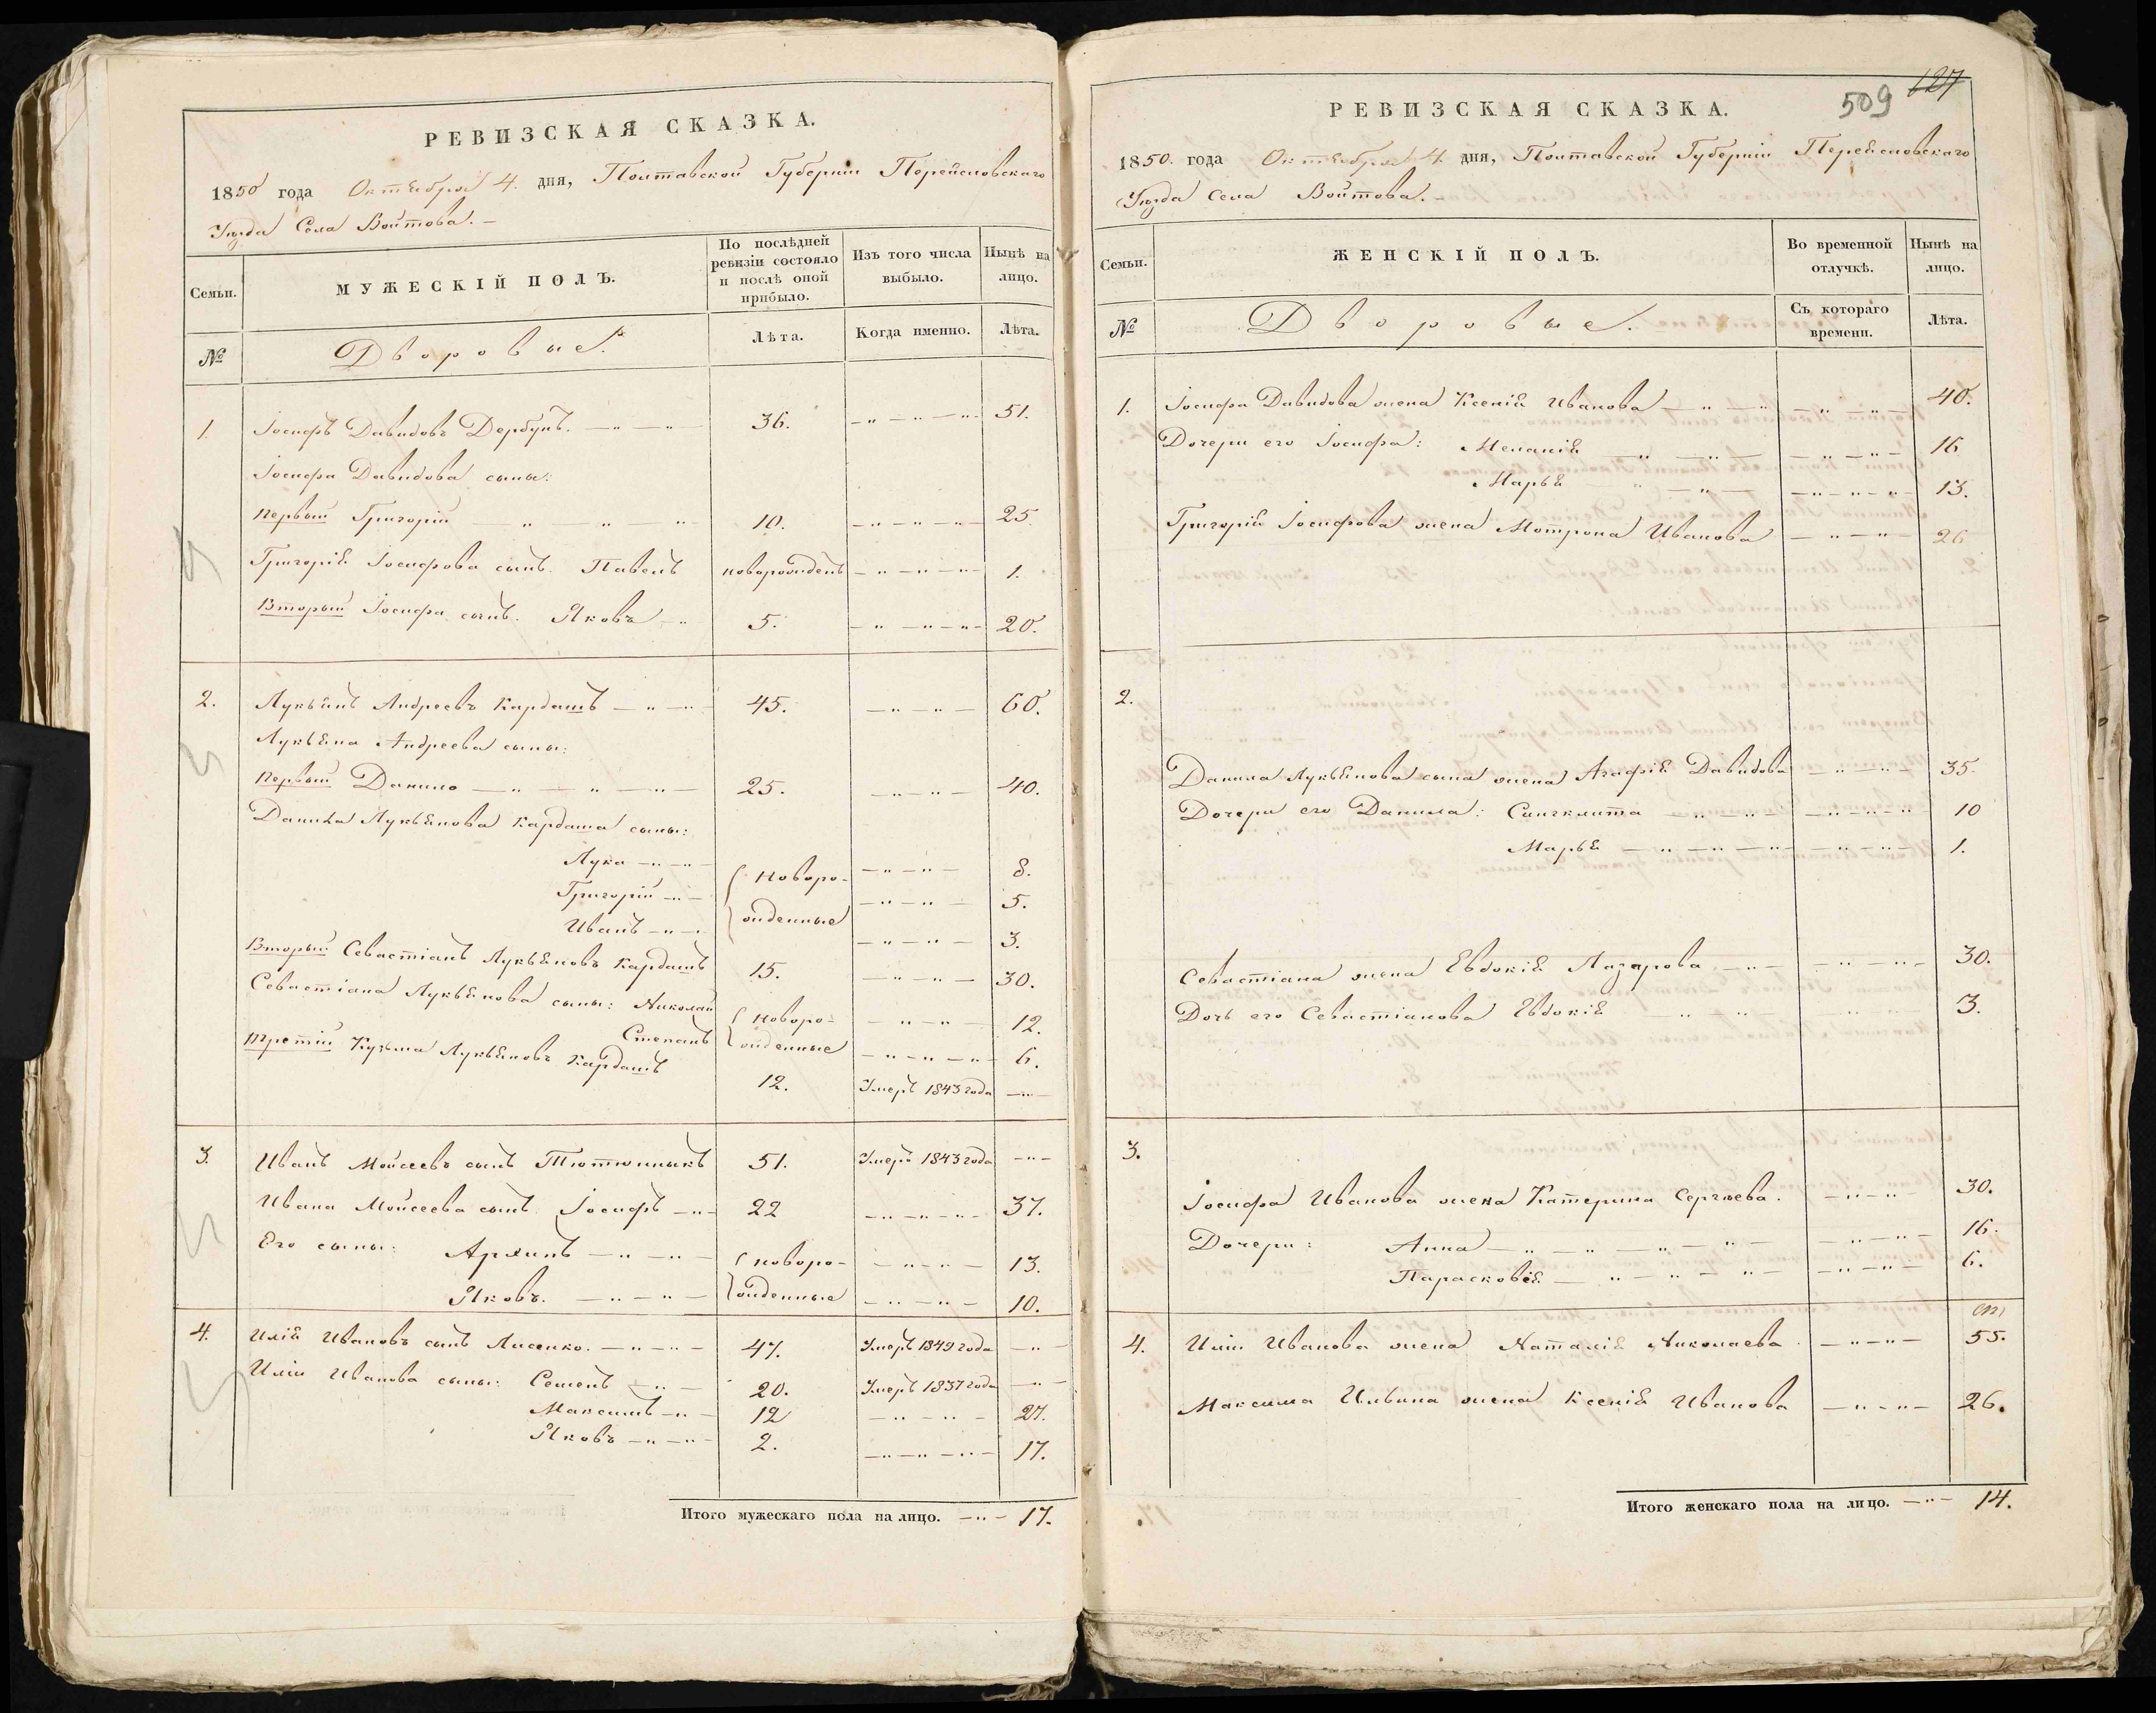 РЕВИЗСКАЯ СКАЗКА.
1850 года Октября 4. дня, Полтавской Губернии Переяславскаго
Уезда Села Войтова.
Семьи.
МУЖЕСКІЙ ПОЛЪ.
По послѣдней ревизіи состояло и послѣ оной прибыло.
Изъ того числа выбыло.
Нынѣ на лицо.
№
Дворовые.
Лѣта.
Когда именно.
Лѣта.
1. Іосифъ Давидовъ Дербунъ. 36. 51.
Іосифа Давидова сыны:
Первый Григорій 10. 25
Григорія Іосифова сынъ Павелъ новорожденъ 1.
Вторый Іосифа сынъ. Яковъ 5. 20.
2. Лукьянъ Андреевъ Кардашъ 45. 60.
Лукьяна Андреева сыны:
Первый Данило 25. 40.
Данила Лукьянова Кардаша сыны:
Лука новоро- 8.
Григорій 5.
Иванъ жденные 3.
Вторый Севастіанъ Лукьяновъ Кардашъ 15. 30.
Севастіана Лукьянова сыны: Николай новоро- 12.
Степанъ жденные 6.
Третій Кузьма Лукьяновъ Кардашъ 12. Умеръ 1843 года
3. Иванъ Мойсеевъ сынъ Тютюнныкъ 51. Умеръ 1843 года
Ивана Мойсеева сынъ Іосифъ 22 37.
Его сыны: Архипъ новоро- 13.
Яковъ. жденные 10.
4. Илія Ивановъ сынъ Лисенко. 47. Умеръ 1849 года
Иліи Иванова сыны: Семенъ 20. Умеръ 1837 года
Максимъ 12 27.
Яковъ 2. 17.
Итого мужескаго пола на лицо. 17.
509 127
РЕВИЗСКАЯ СКАЗКА.
1850. года Октября 4. дня, Полтавской Губерніи Переяславскаго
Уезда Села Войтова.
Семьи.
ЖЕНСКІЙ ПОЛЪ.
Во временной отлучкѣ.
Нынѣ на лицо.
№
Дворовые.
Съ котораго времени.
Лѣта.
1. Іосифа Давидова жена Ксенія Иванова 40.
Дочери его Іосифа: Меланія 16
Марья 13.
Григорія Іосифова жена Мотрона Иванова 26
2.
Данила Лукьянова сына жена Агафія Давидова 35.
Дочери его Данила: Синклита 10
Марья 1.
Севастіана жена Евдокія Лазарова 30.
Дочь его Севастіанова Евдокія 3.
3.
Іосифа Иванова жена Катерина Сергѣева. 30.
Дочери: Анна 16.
Парасковія 6.
4. Иліи Иванова жена Наталія Николаева 55.
Максима Ильина жена Ксенія Иванова 26.
Итого женскаго пола на лицо. 14.